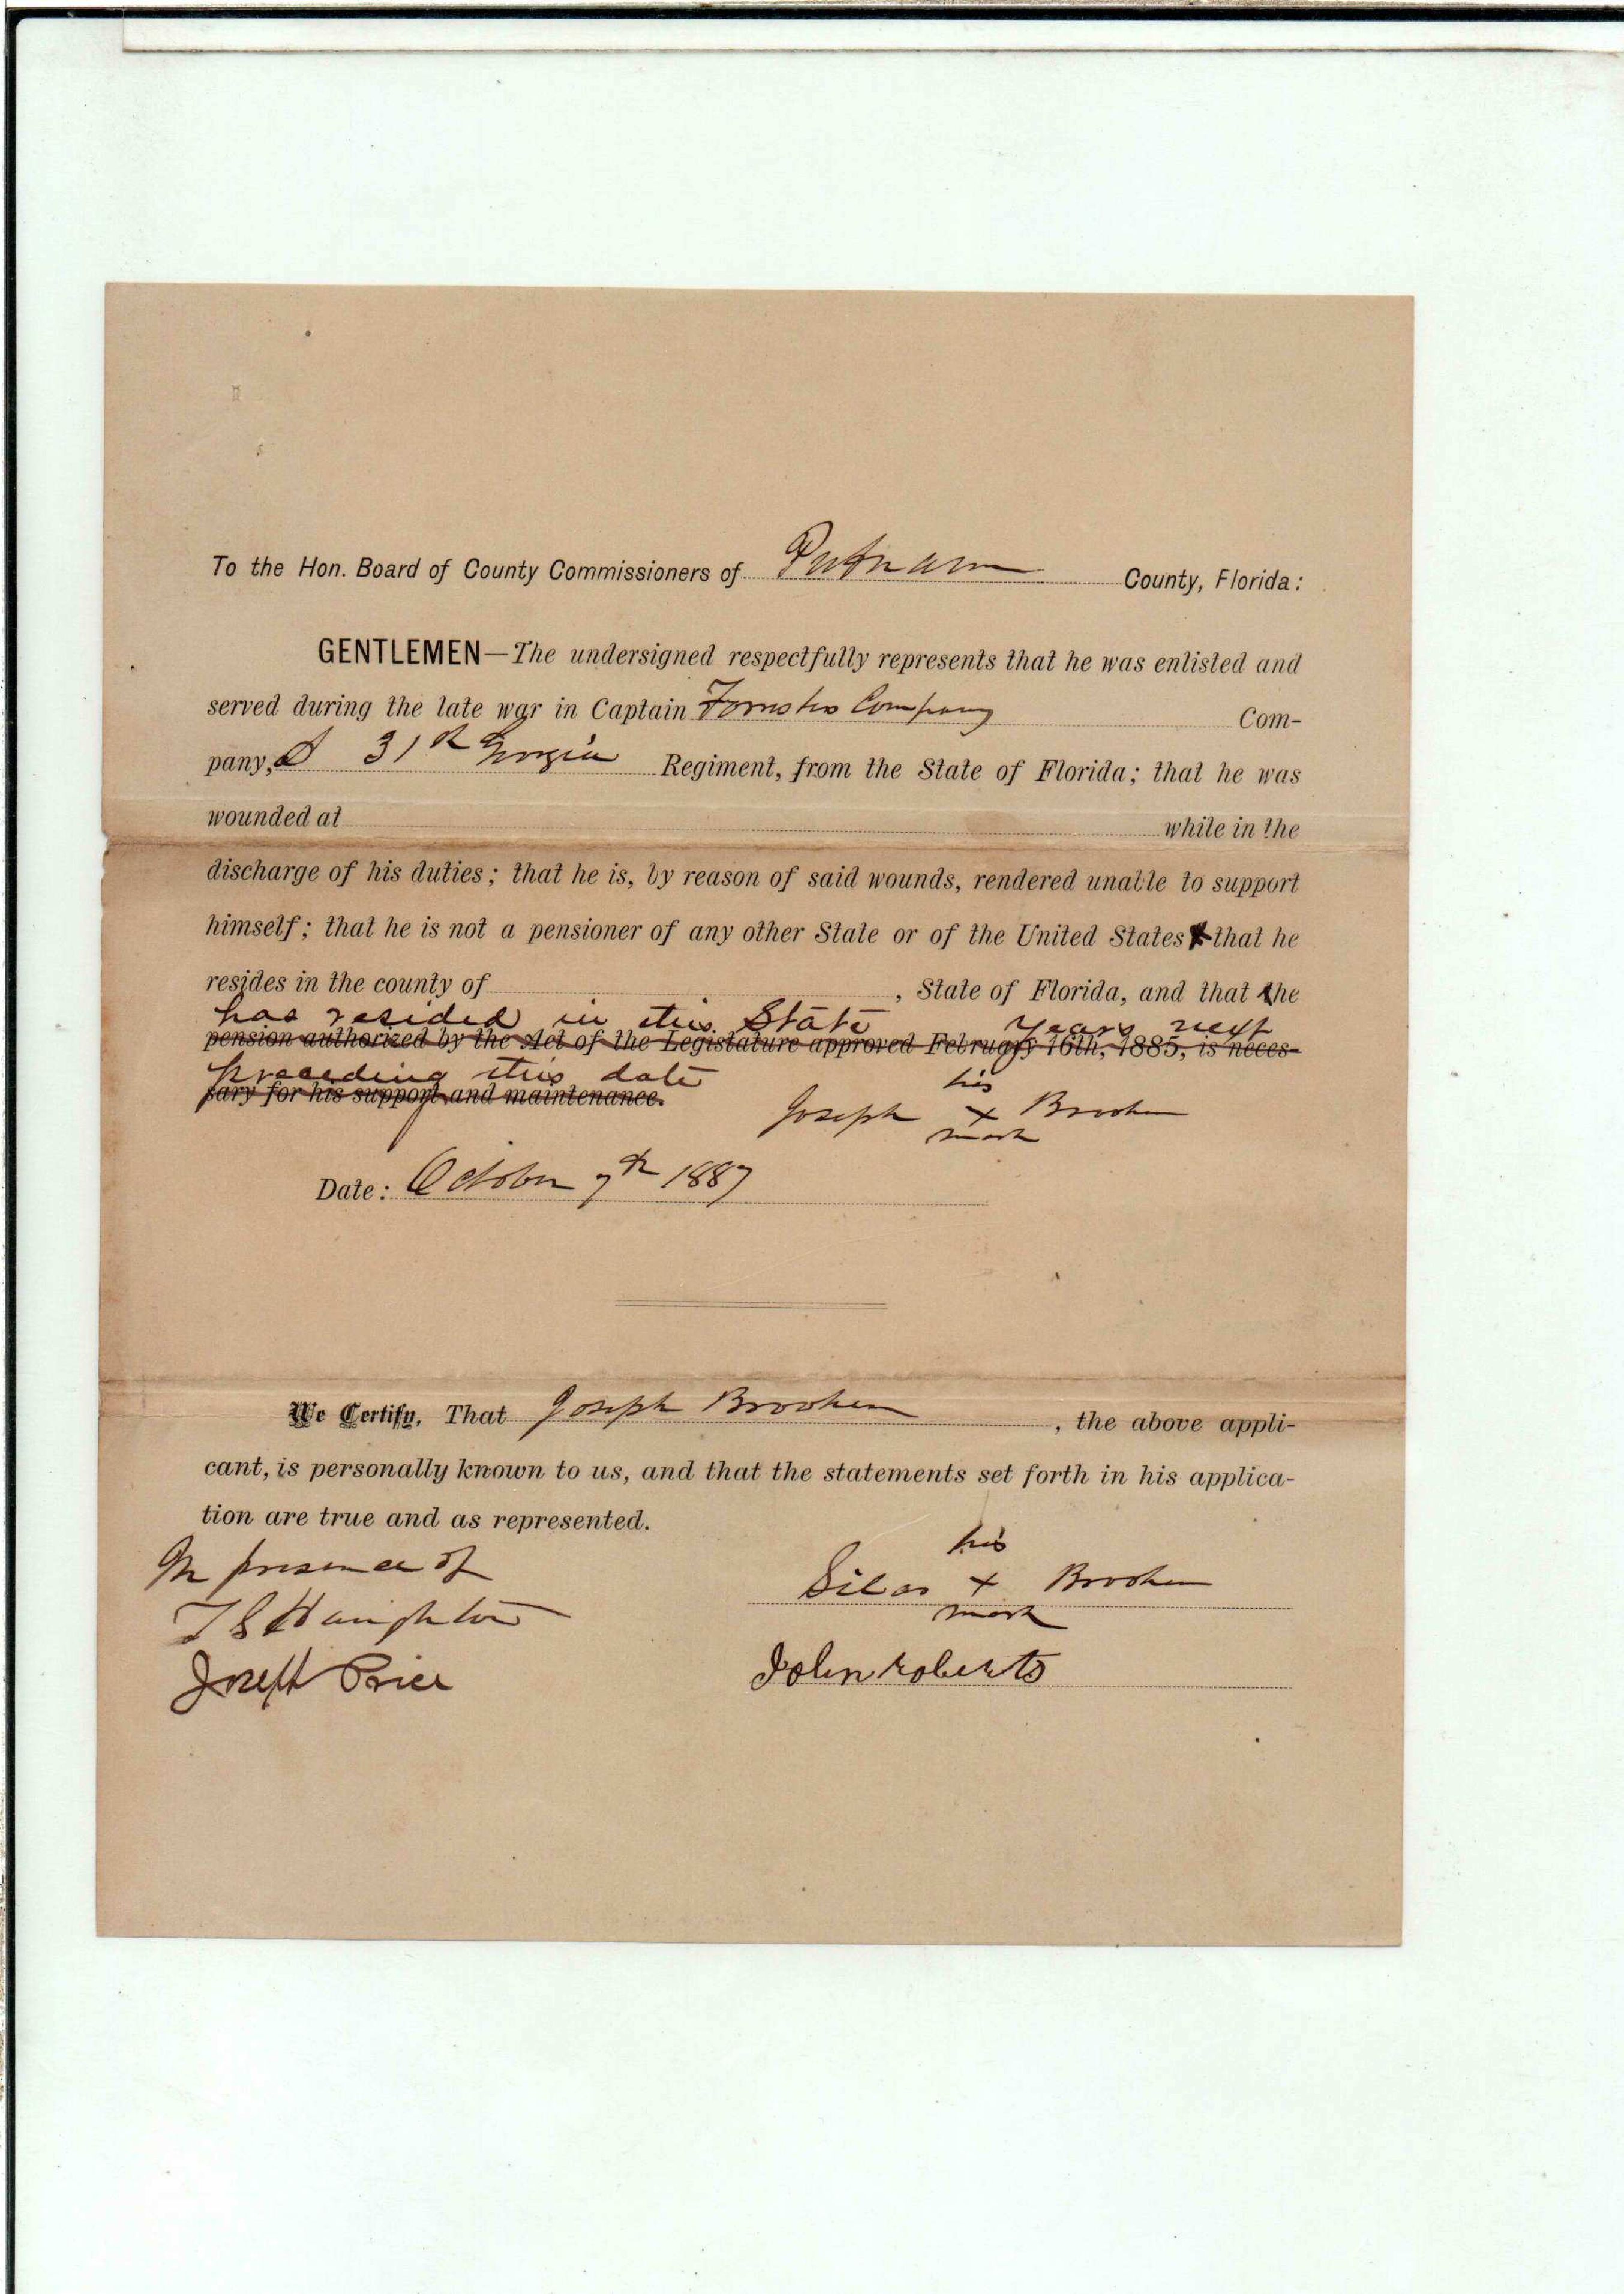 To the Hon. Board of County Commissioners of Putnam County, Florida:
GENTLEMEN—The undersigned respectfully represents that he was enlisted and
served during the late war in Captain Company Com-
pany, 31st Georgia Regiment, from the State of Florida; that he was
wounded at while in the
discharge of his duties; that he is, by reason of said wounds, rendered unable to support
himself; that he is not a pensioner of any other State or of the United States & that he
resides in the county of , State of Florida, and that he
has resided in this State years next
pension authorized by the Act of the Legislature approved February 16th, 1885, is neces-
preceding this date
sary for his support and maintenance.
his
Joseph x Brooken
mark
Date: October 7th 1887
We Certify, That Joseph Brooken, the above appli-
cant, is personally known to us, and that the statements set forth in his applica-
tion are true and as represented.
In presence of
his
Silas x Brooken
mark
T S Haughton
Joseph Price
John roberts